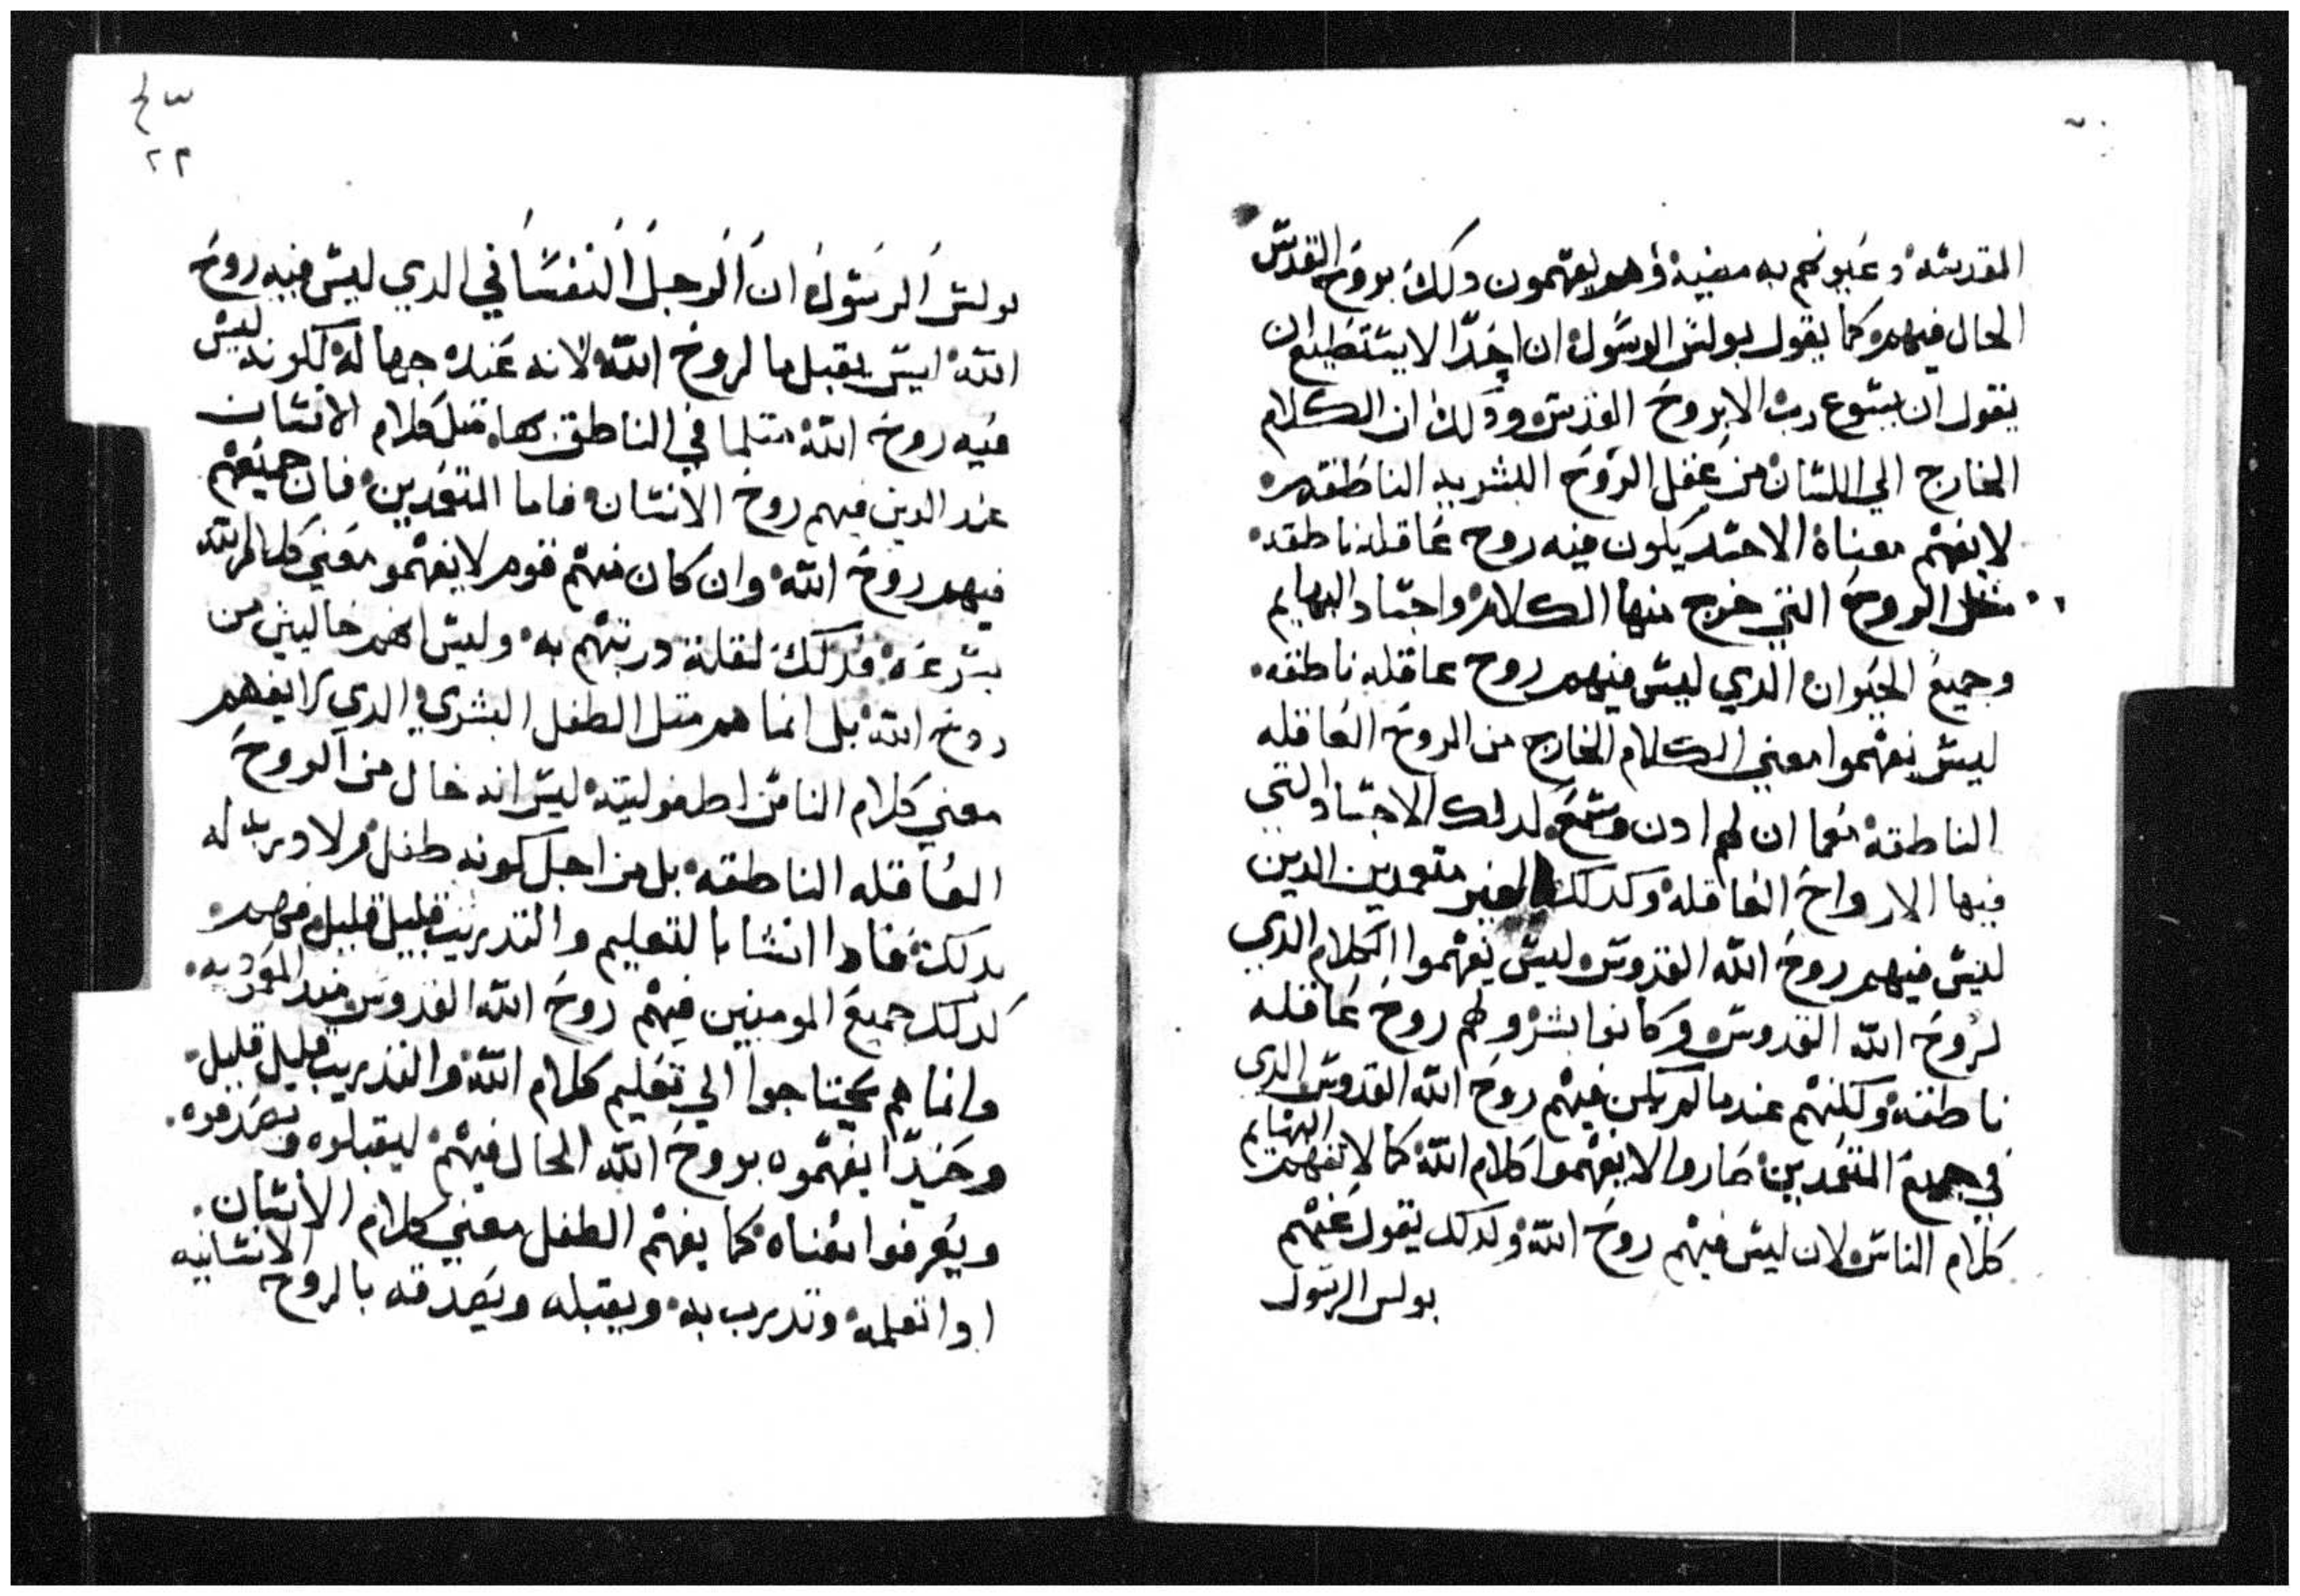 المقدسه وعيونهم به مضيه وهم يفهمون دلك بروح القدس
الحال فيهم كما يقول بولس الرسول ان احدا لا يستطيع ان
يقول ان يسوع رب الا بروح القدس ودلك ان الكلام
الخارج الي اللسان من عقل الروح البشريه الناطقه
لا يفهم معناه الا جسد يكون فيه روح عاقله ناطقه
مثل الروح التي خرج منها الكلام واجساد البهايم
وجميع الحيوان الدي ليس فيهم روح عاقله ناطقه
ليس يفهموا معني الكلام الخارج من الروح العاقله
الناطقه كما ان لهم ادن وسمع لدلك الاجساد التي
فيها الارواح العاقله وكدلك الغير متعمدين الدين
ليس فيهم روح الله القدوس ليس يفهموا الكلام الدي
لروح الله القدوس وكانوا بشر ولهم روح عاقله
ناطقه ولكنهم عندما لم يكن فيهم روح الله القدوس الدي
في جميع المتعمدين صاروا لا يفهموا كلام الله كما لا تفهم البهايم
كلام الناس لان ليس فيهم روح الله وكدلك يقول عنهم
بولس الرسول
٢٣
بولس الرسول ان الرجل النفساني الدي ليس فيه روح
الله ليس يقبل ما لروح الله لانه عنده جهاله لكونه ليس
فيه روح الله متلما في الناطق بها متل كلام الانسان
عند الدين فيهم روح الانسان فاما المتعمدين فان جميعهم
فيهم روح الله وان كان منهم قوم لا يفهمو معني كلام الله
بسرعه فدلك لقلة دربتهم به وليس انهم خاليين من
روح الله بل انما هم متل الطفل البشري الدي لا يفهم
معني كلام الناس لطفوليته ليس انه خال من الروح
العاقله الناطقه بل من اجل كونه طفل ولا دربه له
بدلك فادا انشا بالتعليم والتدريب قليل قليل فهم
كدلك جميع المومنين فيهم روح الله القدوس مند المعموديه
وانما هم يحتاجوا الي تعليم كلام الله والتدريب قليل قليل
وحينيد يفهموه بروح الله الحال فيهم ليقبلوه ويصدقوه
ويعرفوا معناه كما يفهم الطفل معني كلام الانسان
ادا تعلمه وتدرب به ويقبله ويصدقه بالروح الانسانيه